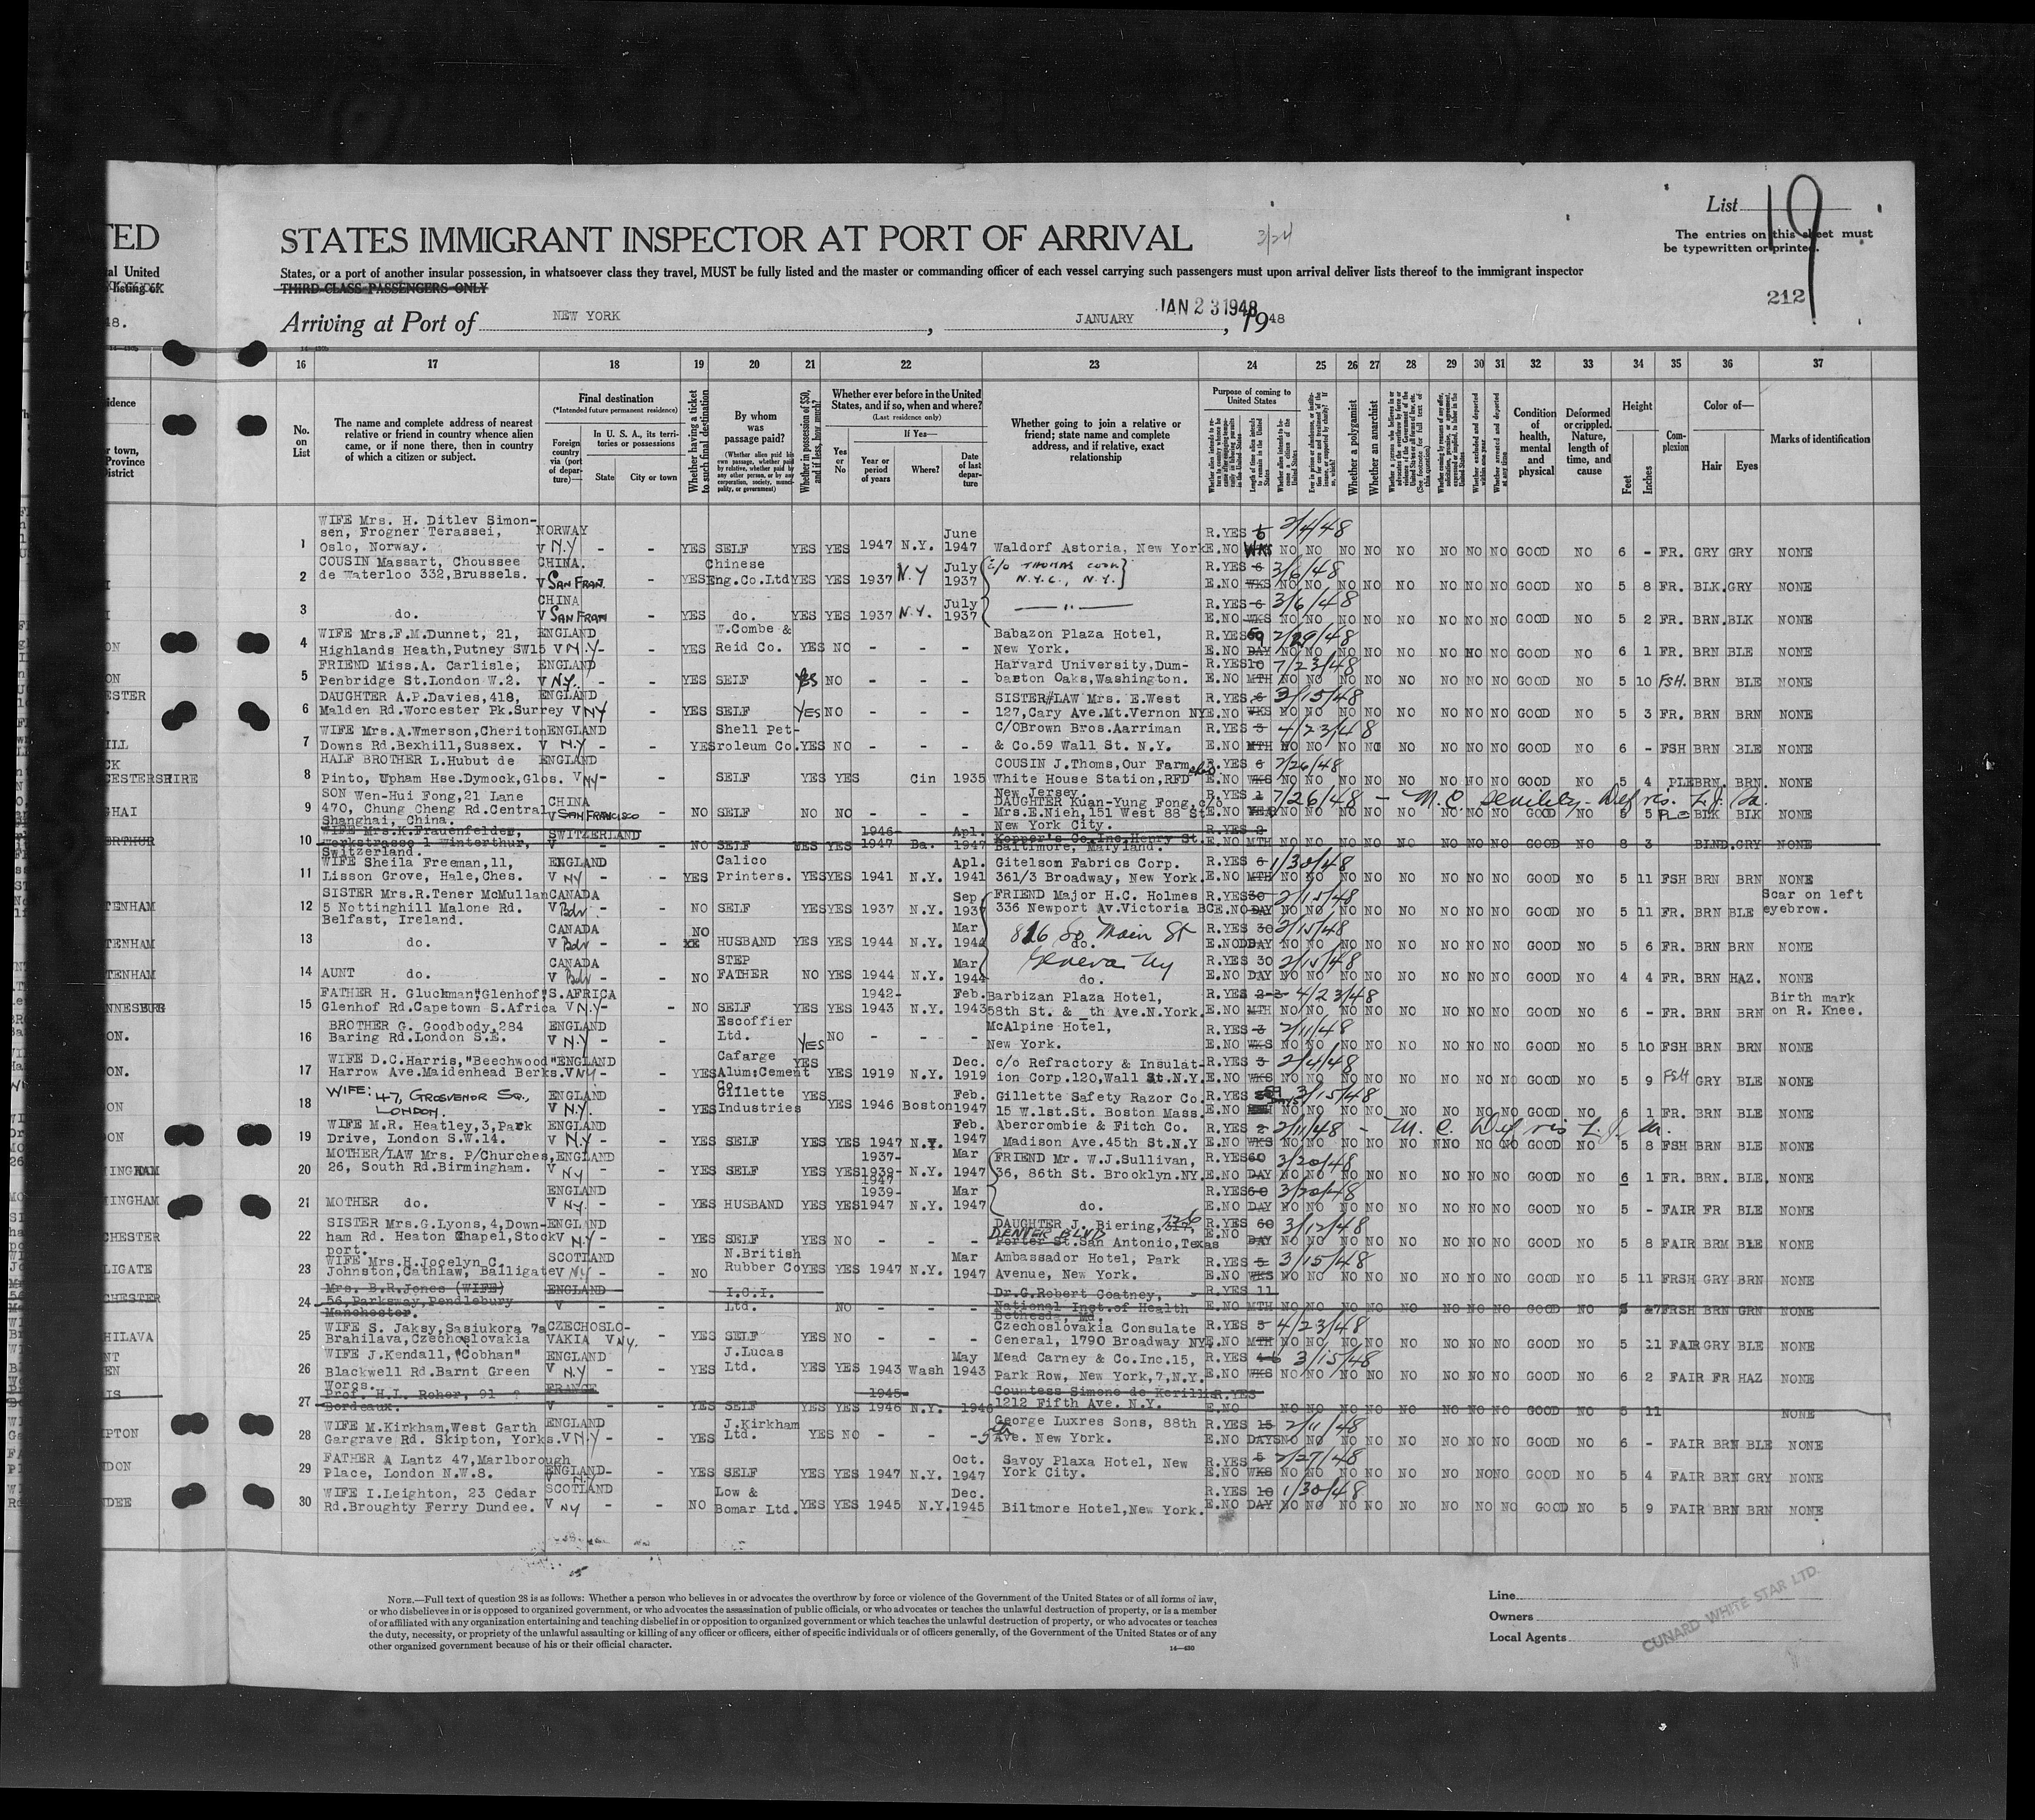 TED
STATES IMMIGRANT INSPECTOR AT PORT OF ARRIVAL
3/24
List 19
The entries on this sheet must
be typewritten or printed.
al United
listing of
States, or a port of another insular possession, in whatsoever class they travel, MUST be fully listed and the master or commanding officer of each vessel carrying such passengers must upon arrival deliver lists thereof to the immigrant inspector
THIRD-CLASS PASSENGERS ONLY
212
Arriving at Port of NEW YORK, JANUARY JAN 23 1948, 1948
16 17 18 19 20 21 22 23 24 25 26 27 28 29 30 31 32 33 34 35 36 37
No. on List
The name and complete address of nearest relative or friend in country whence alien came, or if none there, then in country of which a citizen or subject.
Final destination
(*Intended future permanent residence)
Foreign country via (port of departure)—
In U. S. A., its territories or possessions
State
City or town
Whether having a ticket to such final destination
By whom was passage paid?
(Whether alien paid his own passage, whether paid by relative, whether paid by any other person, or by any corporation, society, municipality, or government)
Whether in possession of $50, and if less, how much?
Whether ever before in the United States, and if so, when and where?
(Last residence only)
Yes or No
If Yes—
Year or period of years
Where?
Date of last departure
Whether going to join a relative or friend; state name and complete address, and if relative, exact relationship
Purpose of coming to United States
Whether a polygamist
Whether an anarchist
Condition of health, mental and physical
Deformed or crippled. Nature, length of time, and cause
Height
Feet
Inches
Complexion
Color of—
Hair
Eyes
Marks of identification
1 WIFE Mrs. H. Ditlev Simonsen, Frogner Terassei, Oslo, Norway. NORWAY V N.Y - - YES SELF YES YES 1947 N.Y. June 1947 Waldorf Astoria, New York R.YES E.NO WKS 2/4/48 NO NO NO NO NO NO NO NO GOOD NO 6 - FR. GRY GRY NONE
2 COUSIN Massart, Choussee de Waterloo 332,Brussels. CHINA. V SAN FRAN. - YES Chinese Eng.Co.Ltd YES YES 1937 N.Y July 1937 c/o THOMAS COOK N.Y.C., N.Y. R.YES 6 E.NO WKS 3/6/48 NO NO NO NO NO NO NO NO GOOD NO 5 8 FR. BLK.GRY NONE
3 do. CHINA V SAN FRAN - YES do. YES YES 1937 N.Y. July 1937 — " — R.YES 6 E.NO WKS 3/6/48 NO NO NO NO NO NO NO NO GOOD NO 5 2 FR. BRN.BLK NONE
4 WIFE Mrs.F.M.Dunnet, 21, Highlands Heath,Putney SW15 ENGLAND V N.Y- - YES W.Combe & Reid Co. YES NO - - - Babazon Plaza Hotel, New York. R.YES E.NO DAY 2/29/48 NO NO NO NO NO NO NO NO GOOD NO 6 1 FR. BRN BLE NONE
5 FRIEND Miss.A. Carlisle, Penbridge St.London W.2. ENGLAND V NY. - - YES SELF YES NO - - - Harvard University,Dumbarton Oaks,Washington. R.YES 10 E.NO MTH 7/23/48 NO NO NO NO NO NO NO NO GOOD NO 5 10 FSH. BRN BLE NONE
6 DAUGHTER A.P.Davies,418, Malden Rd.Worcester Pk.Surrey ENGLAND V NY - YES SELF YES NO - - - SISTER#LAW Mrs. E.West 127,Cary Ave.Mt.Vernon NY R.YES 6 E.NO WKS 3/15/48 NO NO NO NO NO NO NO NO GOOD NO 5 3 FR. BRN BRN NONE
7 WIFE Mrs.A.Wmerson,Cheriton Downs Rd.Bexhill,Sussex. ENGLAND V N.Y - - YES Shell Petroleum Co. YES NO - - - C/OBrown Bros.Aarriman & Co.59 Wall St. N.Y. R.YES 3 E.NO MTH 4/23/48 NO NO NO NO NO NO NO NO GOOD NO 6 - FSH BRN BLE NONE
8 HALF BROTHER L.Hubut de Pinto, Upham Hse.Dymock,Glos. ENGLAND V NY- - SELF YES YES Cin 1935 COUSIN J.Thoms,Our Farm, White House Station,RFD New Jersey. R.YES 6 E.NO WKS 2/26/48 NO NO NO NO NO NO NO NO GOOD NO 5 4 PLE BRN. BRN. NONE
9 SON Wen-Hui Fong,21 Lane 470, Chung Cheng Rd.Central Shanghai, China. CHINA V SAN FRANCISCO NO SELF NO NO - - - DAUGHTER Kuan-Yung Fong,c/o Mrs.E.Nieh,151 West 88 St New York City. R.YES 1 E.NO YEAR 7/26/48 - M.C. Senility - Def vis. NO NO NO NO NO NO NO NO GOOD NO 5 5 PLE BLK BLK NONE
10 WIFE Mrs.K.Frauenfelder, Werkstrasse 1 Winterthur, Switzerland. SWITZERLAND V - - NO SELF YES YES 1946-1947 Ba. Apl. 1947 Kopper's Co.Inc,Henry St. Baltimore, Maryland. R.YES 2 E.NO MTH NO NO NO NO NO NO NO NO GOOD NO 8 3 BLND.GRY NONE
11 WIFE Sheila Freeman,11, Lisson Grove, Hale,Ches. ENGLAND V NY - - YES Calico Printers. YES YES 1941 N.Y. Apl. 1941 Gitelson Fabrics Corp. 361/3 Broadway, New York. R.YES 6 E.NO MTH 1/30/48 NO NO NO NO NO NO NO NO GOOD NO 5 11 FSH BRN BRN NONE
12 SISTER Mrs.R.Tener McMullan 5 Nottinghill Malone Rd. Belfast, Ireland. CANADA V Bdr - - NO SELF YES YES 1937 N.Y. Sep 1937 FRIEND Major H.C. Holmes 336 Newport Av.Victoria BC R.YES 30 E.NO DAY 2/15/48 NO NO NO NO NO NO NO NO GOOD NO 5 11 FR. BRN BLE Scar on left eyebrow.
13 do. CANADA V Bdr - - NO HUSBAND YES YES 1944 N.Y. Mar 1944 do. 816 So Main St R.YES 30 E.NO DDAY 2/15/48 NO NO NO NO NO NO NO NO GOOD NO 5 6 FR. BRN BRN NONE
14 AUNT do. CANADA V Bdr - NO STEP FATHER NO YES 1944 N.Y. Mar 1944 Geneva NY do. R.YES 30 E.NO DAY 2/15/48 NO NO NO NO NO NO NO NO GOOD NO 4 4 FR. BRN HAZ. NONE
15 FATHER H. Gluckman"Glenhof" Glenhof Rd.Capetown S.Africa S.AFRICA V N.Y- - NO SELF YES YES 1942-1943 N.Y. Feb. 1943 Barbizan Plaza Hotel, 58th St. & _th Ave.N.York. R.YES 2-3 E.NO MTH 4/23/48 NO NO NO NO NO NO NO NO GOOD NO 6 - FR. BRN BRN Birth mark on R. Knee.
16 BROTHER G. Goodbody,284 Baring Rd.London S.E. ENGLAND V N.Y - - Escoffier Ltd. YES NO - - - McAlpine Hotel, New York. R.YES 3 E.NO WKS 2/11/48 NO NO NO NO NO NO NO NO GOOD NO 5 10 FSH BRN BRN NONE
17 WIFE D.C.Harris,"Beechwood" Harrow Ave.Maidenhead Berks. ENGLAND V NY - - YES Cafarge Alum:Cement Co. YES YES 1919 N.Y. Dec. 1919 c/o Refractory & Insulation Corp.120,Wall St.N.Y. R.YES 3 E.NO WKS 2/4/48 NO NO NO NO NO NO NO NO GOOD NO 5 9 FSH GRY BLE NONE
18 WIFE: 47, GROSVENOR SQ., LONDON. ENGLAND V N.Y. - - YES Gillette Industries YES YES 1946 Boston Feb. 1947 Gillette Safety Razor Co. 15 W.1st.St. Boston Mass. R.YES E.NO 3/15/48 NO NO NO NO NO NO NO NO GOOD NO 6 1 FR. BRN BLE NONE
19 WIFE M.R. Heatley,3,Park Drive, London S.W.14. ENGLAND V N.Y - - YES SELF YES YES 1947 N.Y. Feb. 1947 Abercrombie & Fitch Co. Madison Ave.45th St.N.Y R.YES 2 E.NO WKS 2/11/48 - M.C. Def vis NO NO NO NO NO NNO NO NO GOOD NO 5 8 FSH BRN BLE NONE
20 MOTHER/LAW Mrs. P/Churches, 26, South Rd.Birmingham. ENGLAND V NY - YES SELF YES YES 1937- 1939-1947 N.Y. Mar 1947 FRIEND Mr. W.J.Sullivan, 36, 86th St. Brooklyn.NY. R.YES 60 E.NO DAY 3/20/48 NO NO NO NO NO NO NO NO GOOD NO 6 1 FR. BRN. BLE. NONE
21 MOTHER do. ENGLAND V NY. - - YES HUSBAND YES YES 1939-1947 N.Y. Mar 1947 do. R.YES 60 E.NO DAY 3/20/48 NO NO NO NO NO NO NO NO GOOD NO 5 - FAIR FR BLE NONE
22 SISTER Mrs.G.Lyons,4,Downham Rd. Heaton Chapel,Stockport. ENGLAND V N.Y. - - YES SELF YES NO - - - DAUGHTER J. Biering, DENVER BLVD Porter St.San Antonio,Texas R.YES 60 E.NO DAY 3/12/48 NO NO NO NO NO NO NO NO GOOD NO 5 8 FAIR BRM BLE NONE
23 WIFE Mrs.H.Jocelyn C. Johnston,Cathlaw, Balligate SCOTLAND V NY - - NO N.British Rubber Co YES YES 1947 N.Y. Mar 1947 Ambassador Hotel, Park Avenue, New York. R.YES 5 E.NO WKS 3/15/48 NO NO NO NO NO NO NO NO GOOD NO 5 11 FRSH GRY BRN NONE
24 Mrs. B.R.Jones (WIFE) 56,Parksway,Pendlebury Manchester. ENGLAND V - - I.C.I. Ltd. NO - - - Dr.G.Robert Coatney, National Inst.of Health Bethesda, Md. R.YES 11 E.NO MTH NO NO NO NO NO NO NO NO GOOD NO FRSH BRN GRN NONE
25 WIFE S. Jaksy,Sasiukora 7a Brahilava,Czechoslovakia CZECHOSLOVAKIA V N.Y. - YES SELF YES NO - - - Czechoslovakia Consulate General, 1790 Broadway NY R.YES 5 E.NO MTH 4/23/48 NO NO NO NO NO NO NO NO GOOD NO 5 11 FAIR GRY BLE NONE
26 WIFE J.Kendall,"Cobhan" Blackwell Rd.Barnt Green Worcs. ENGLAND V N.Y - - YES J.Lucas Ltd. YES YES 1943 Wash May 1943 Mead Carney & Co.Inc.15, Park Row, New York,7,N.Y. R.YES E.NO WKS 3/15/48 NO NO NO NO NO NO NO NO GOOD NO 6 2 FAIR FR HAZ NONE
27 Prof. H.L. Roher, 91 ? Bordeaux. FRANCE V - - YES SELF YES YES 1945-1946 N.Y. 1946 Countess Simone de Kerillis 1212 Fifth Ave. N.Y. R.YES E.NO NO NO NO NO NO NO NO GOOD NO 5 11 NONE
28 WIFE M.Kirkham,West Garth Gargrave Rd. Skipton, Yorks. ENGLAND V N.Y - - YES J.Kirkham Ltd. YES NO - - - George Luxres Sons, 88th 5th Ave. New York. R.YES 15 E.NO DAYS 2/11/48 NO NO NO NO NO NO NO NO GOOD NO 6 - FAIR BRN BLE NONE
29 FATHER A Lantz 47,Marlborough Place, London N.W.8. ENGLAND V N.Y - - YES SELF YES YES 1947 N.Y. Oct. 1947 Savoy Plaxa Hotel, New York City. R.YES 5 E.NO WKS 2/27/48 NO NO NO NO NO NO NO NO GOOD NO 5 4 FAIR BRN GRY NONE
30 WIFE I.Leighton, 23 Cedar Rd.Broughty Ferry Dundee. SCOTLAND V NY - - NO Low & Bomar Ltd. YES YES 1945 N.Y. Dec. 1945 Biltmore Hotel,New York. R.YES 10 E.NO DAY 1/30/48 NO NO NO NO NO NO NO NO GOOD NO 5 9 FAIR BRN BRN NONE
NOTE.—Full text of question 28 is as follows: Whether a person who believes in or advocates the overthrow by force or violence of the Government of the United States or of all forms of law,
or who disbelieves in or is opposed to organized government, or who advocates the assassination of public officials, or who advocates or teaches the unlawful destruction of property, or is a member
of or affiliated with any organization entertaining and teaching disbelief in or opposition to organized government or which teaches the unlawful destruction of property, or who advocates or teaches
the duty, necessity, or propriety of the unlawful assaulting or killing of any officer or officers, either of specific individuals or of officers generally, of the Government of the United States or of any
other organized government because of his or their official character.
14—430
Line
Owners
Local Agents
CUNARD WHITE STAR LTD.